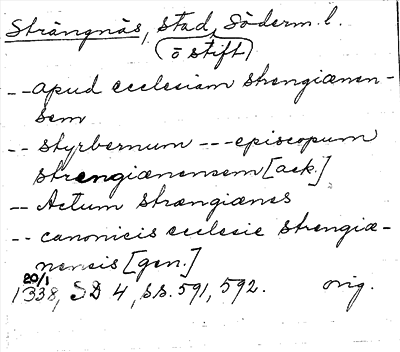 Strängnäs, stad, Söderm. l.
(o stift)
-- apud ecclesiam strengiænen-
sem
-- styrbernum --- episcopum
strengiænensem [ack.]
-- Actum strængiænes
-- canonicis ecclesie strengiæ-
nensis [gen.]
20/1
1338, SD 4, ss. 591, 592. orig.